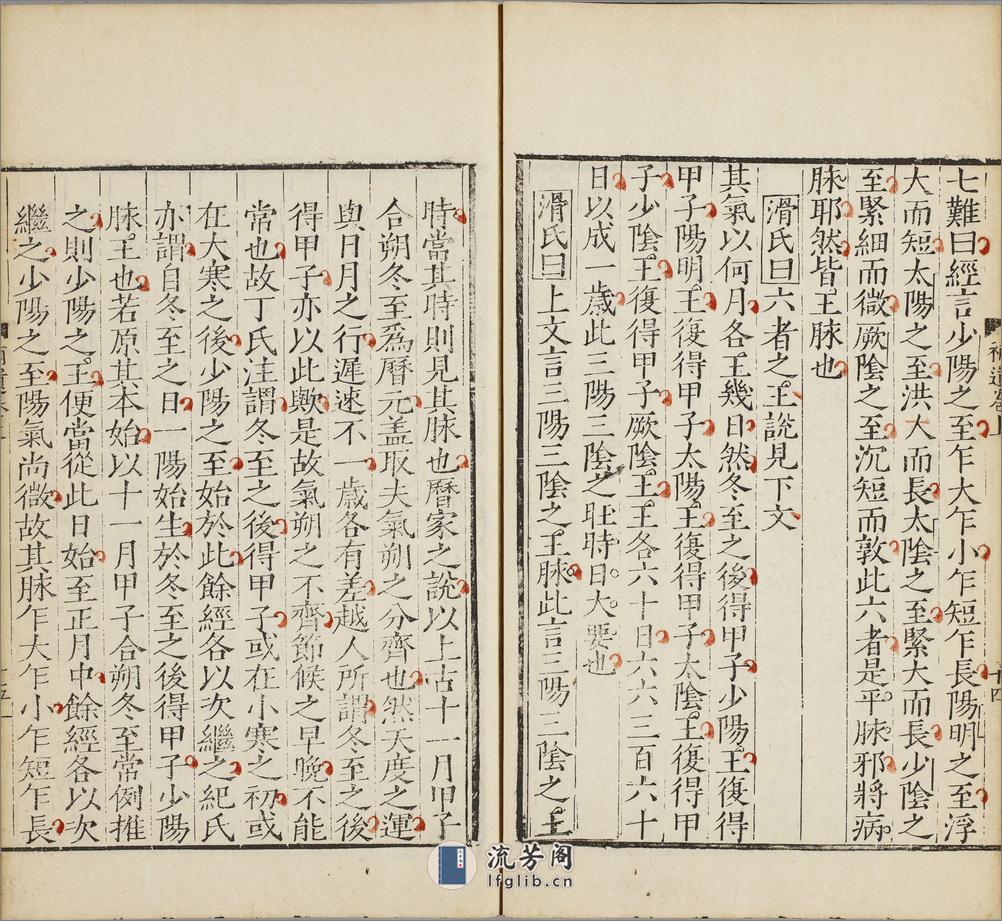 七難曰經言少陽之至乍大乍小乍短乍長陽明之至浮
大而短太陽之至洪大而長太陰之至緊大而長少陰之
至緊細而微厥陰之至沉短而敦此六者是平脉邪將病
脉耶然皆王脉也
滑氏曰六者之王說見下文
其氣以何月各王幾日然冬至之後得甲子少陽王復得
甲子陽明王復得甲子太陽王復得甲子太陰王復得甲
子少陰王復得甲子厥陰王王各六十日六六三百六十
日以成一歲此三陽三陰之旺時日大要也
滑氏曰上文言三陽三陰之王脉此言三陽三陰之王
時當其時則見其脉也曆家之說以上古十一月甲子
合朔冬至爲曆元盖取夫氣朔之分齊也然天度之運
與日月之行遲速不一歲各有差越人所謂冬至之後
得甲子亦以此歟是故氣朔之不齊節候之早晚不能
常也故丁氏注謂冬至之後得甲子或在小寒之初或
在大寒之後少陽之至始於此餘經各以次繼之紀氏
亦謂自冬至之日一陽始生於冬至之後得甲子少陽
脉王也若原其本始以十一月甲子合朔冬至常例推
之則少陽之王便當從此日始至正月中餘經各以次
繼之少陽之至陽氣尚微故其脉乍大乍小乍短乍長
流芳阁
lfglib.cn